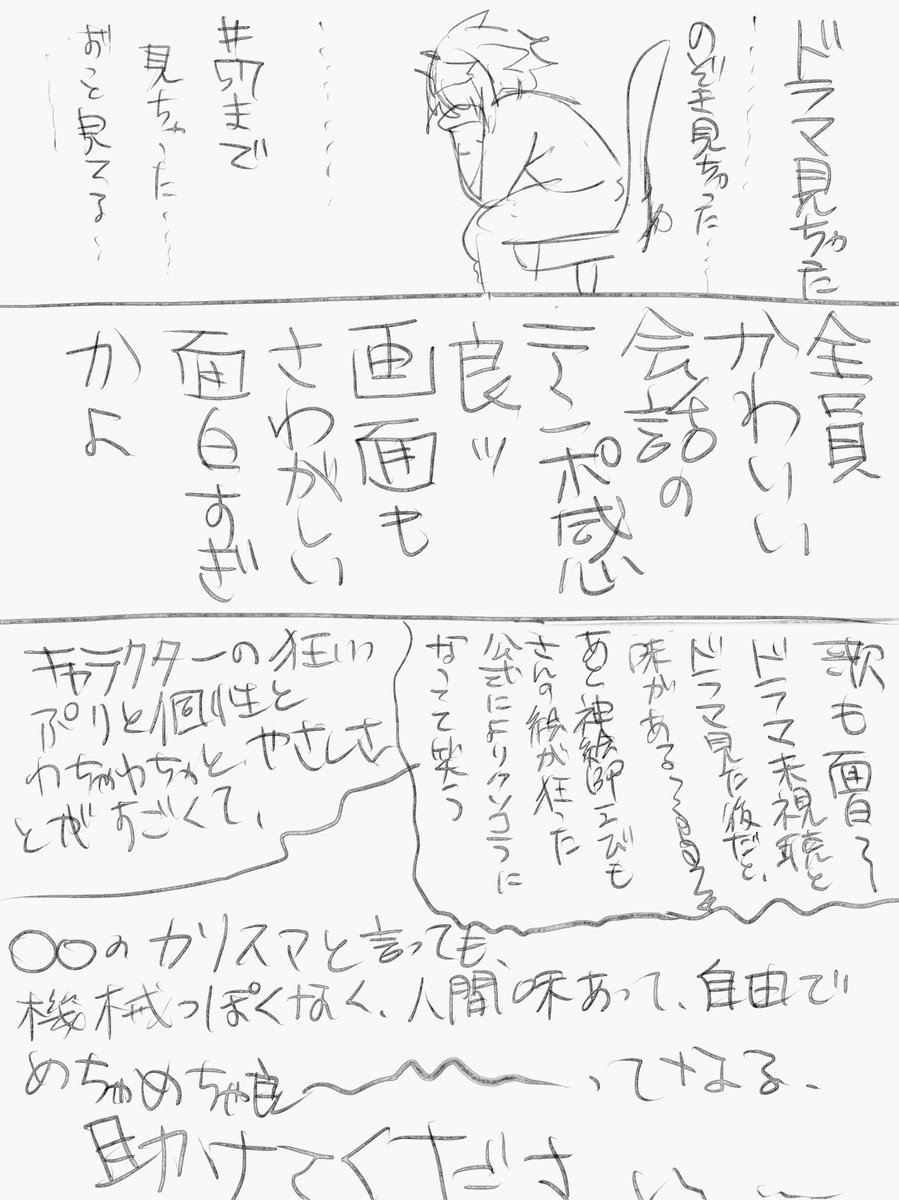 ドラマ見ちゃった
のぞき見ちゃった…
#57まで
見ちゃった…
おこと見てる〜
全員
かわいい
会話の
テンポ感
良ッ
画面も
さわがしい
面白すぎ
かよ
歌も面白〜
ドラマ未視聴と
ドラマ見た後だと、
味がある〜
あと神絵師エびも
さんの絵が狂った
公式によりクソコラに
なってて笑う
キャラクターの狂いっ
ぷりと個性と
わちゃわちゃと、やさしさ
とがすごくて、
〇〇のカリスマと言っても、
機械っぽくなく、人間味あって、自由で
めちゃめちゃ良〜ってなる、
助けてください〜